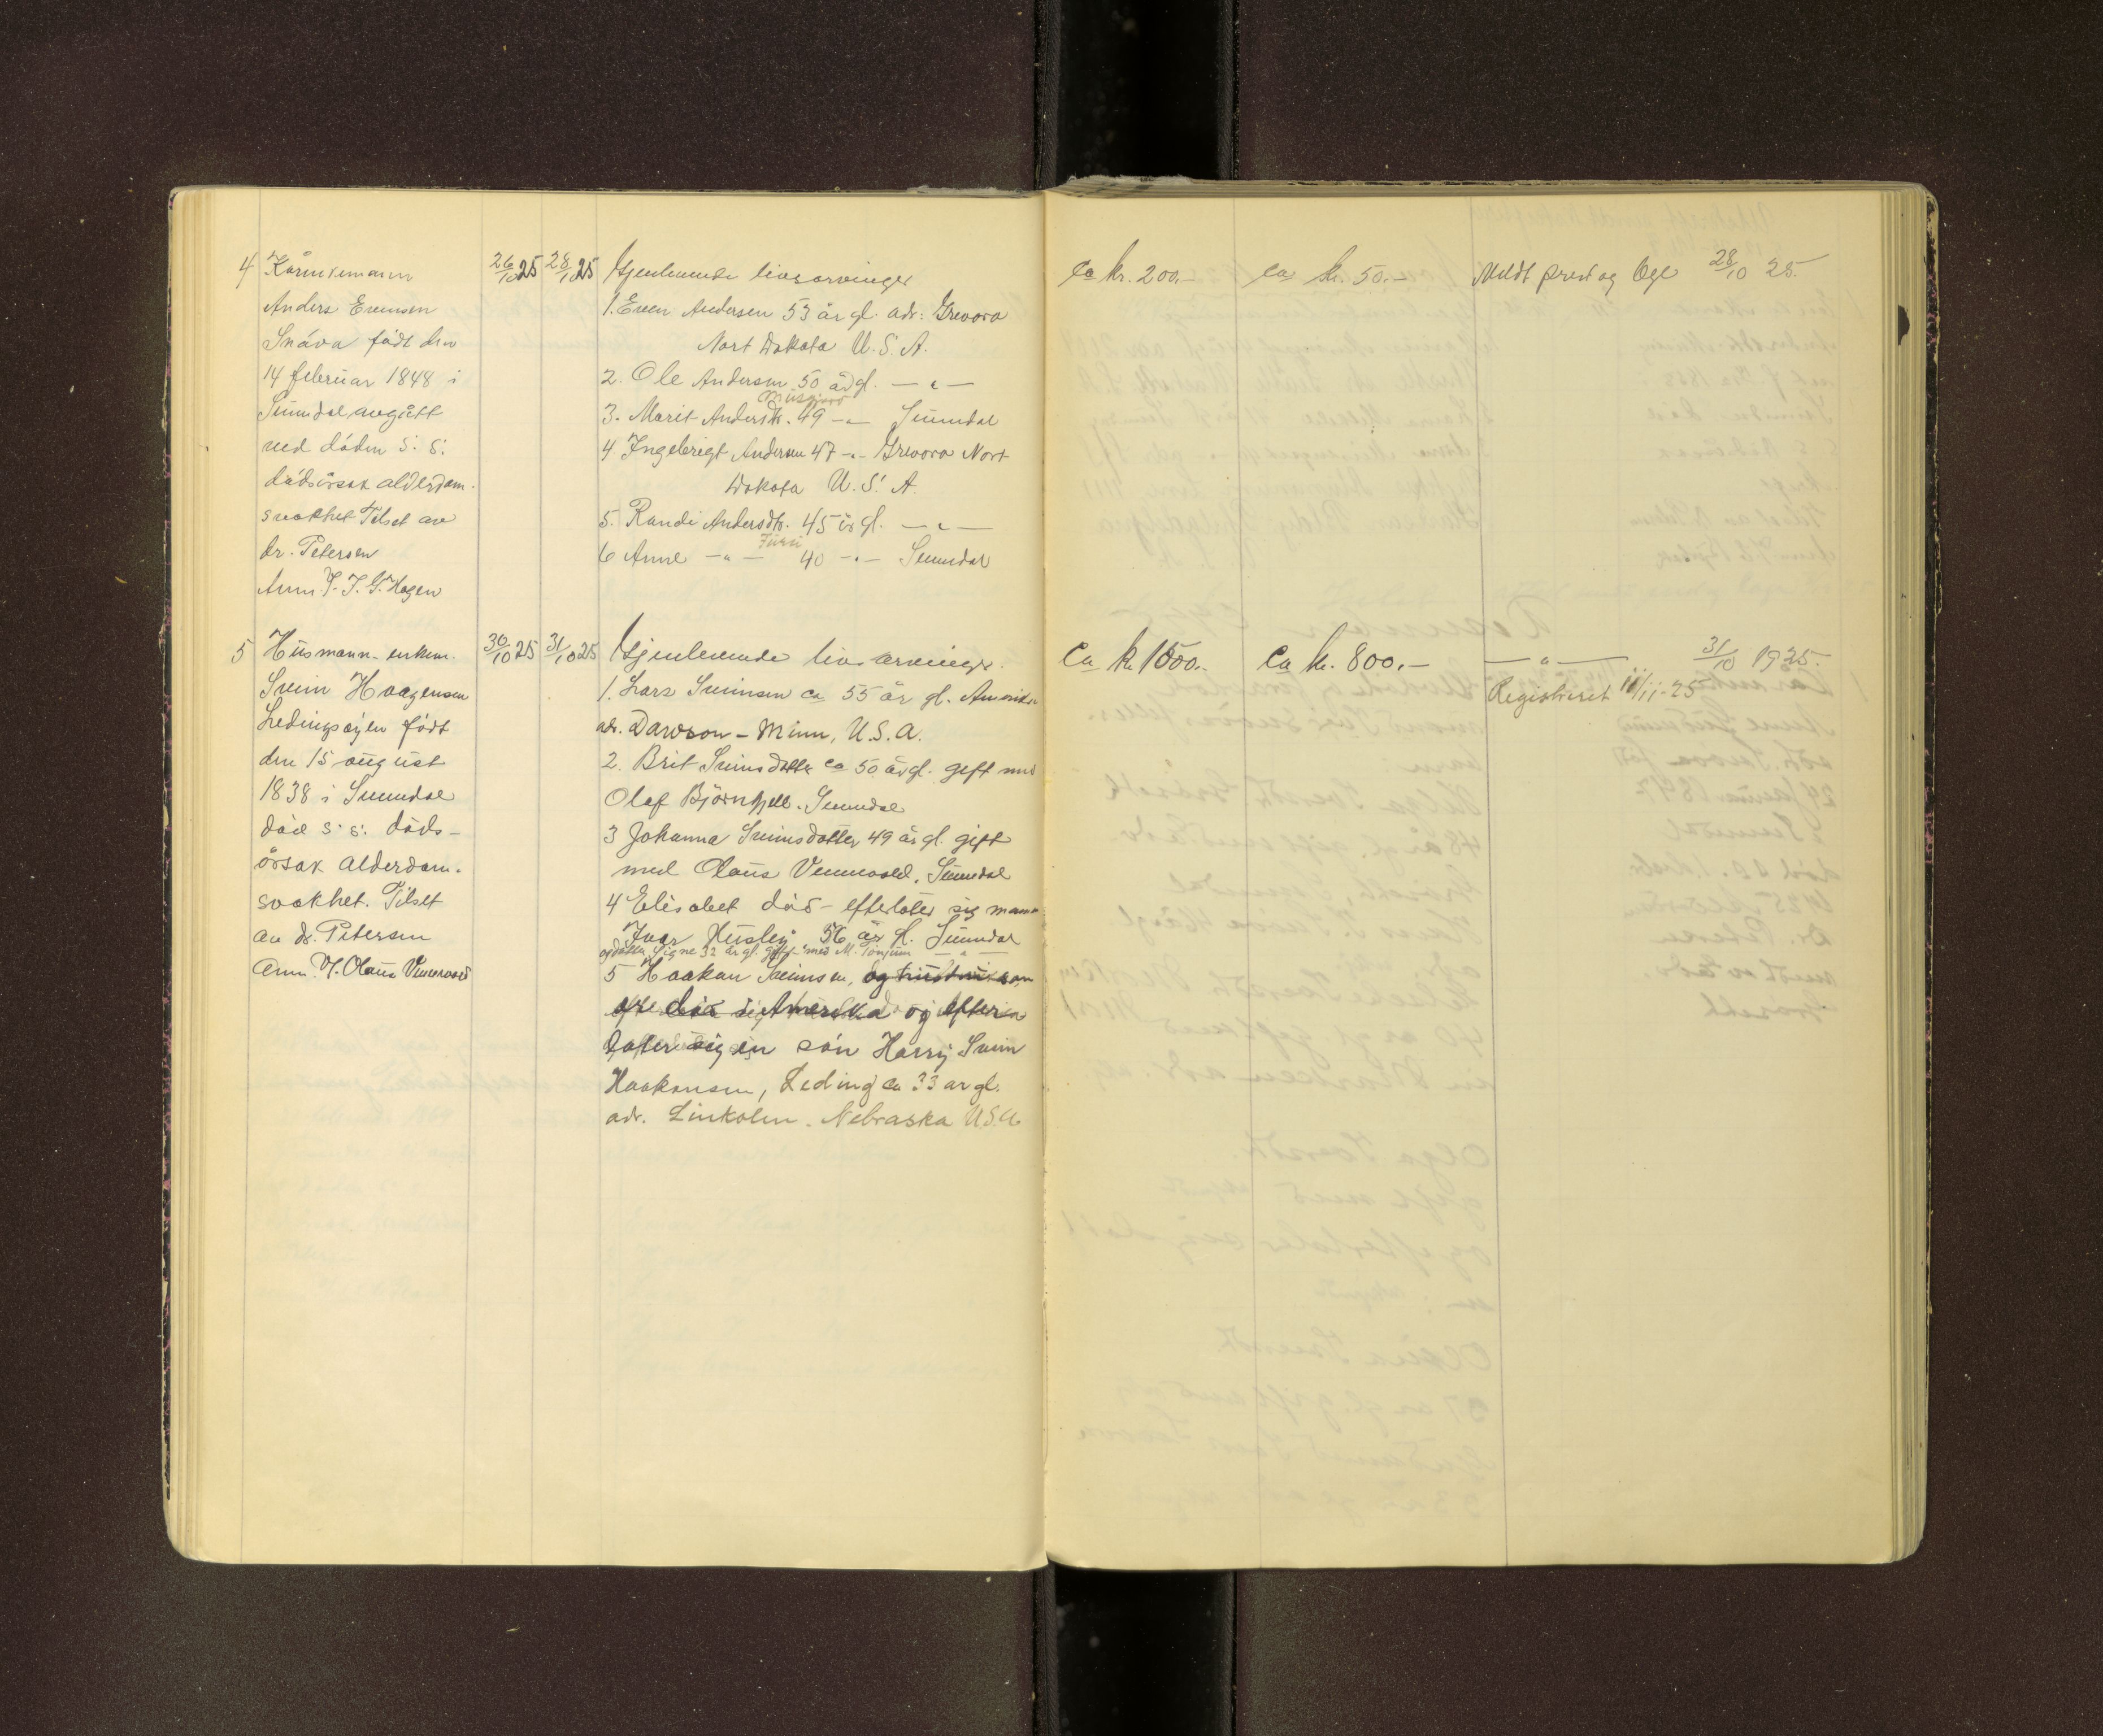 4 Kårmkemann 26/10 25 28/10 25 Gjenlevende livsarvinger ca kr. 200.- ca kr. 50.- Meldt prest og lege 28/10 25.
Anders Evensen 1. Even Andersen 53 år gl. adr: Grevora
Snøva født den Nort Dakota U.S.A.
14 februar 1848 i 2. Ole Andersen 50 år gl. — " —
Sunndal avgått 3. Marit Andersdtr. 49 — " — Sunndal
ved døden s. s. 4 Ingebrigt Andersen 47 - " - Grevora Nort
dødsårsak alderdom- Dakota U.S.A.
svakhet Tilset av 5. Randi Andersdtr. 45 år gl. — " —
dr. Petersen 6 Anne — " — 40 — " — Sunndal
Anm. J. G. Hagen
5 Husmann - enkem. 30/10 25 31/10 25 Gjenlevende livsarvinger. ca kr 1500.- ca kr. 800.- — " — 31/10 1925.
Svein Haagensen 1. Lars Sveinsen ca 55 år gl. Amerika Registreret 11/11-25
Ledingsøien født adr. Dawson - Minn, U.S.A.
den 15 august 2. Brit Sveinsdatter ca 50 år gl. gift med
1838 i Sunndal Olaf Björnhjell. Sunndal
død s. s. døds- 3 Johanna Sveinsdatter 49 år gl. gift
årsak alderdom- med Olaus Vennevold, Sunndal
svakhet. Tilset 4 Elisabet død - efterlater sig mann
av dr. Petersen Ivar Husby 56 år gl. Sunndal
Anm. Olaus Vennevold og datter Signe 32 år gl. gift med M. — " —
5 Haakan Sveinsen, og hustru som
er død i Amerika og efter
later sig en søn Harry Svein
Haakonsen, Leding ca 33 år gl.
adr. Linkoln. Nebraska U.S.A.